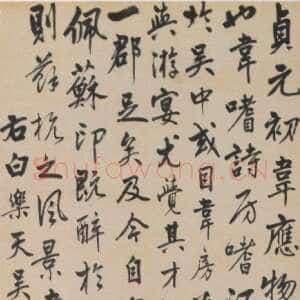 貞元初韋應物
也韋嗜詩房嗜
於吳中或目韋房
與游宴尤覺其才
一郡足矣及今自
佩蘇印既醉於
則蘇杭之風景
右白樂天吳
Shufawang.CN